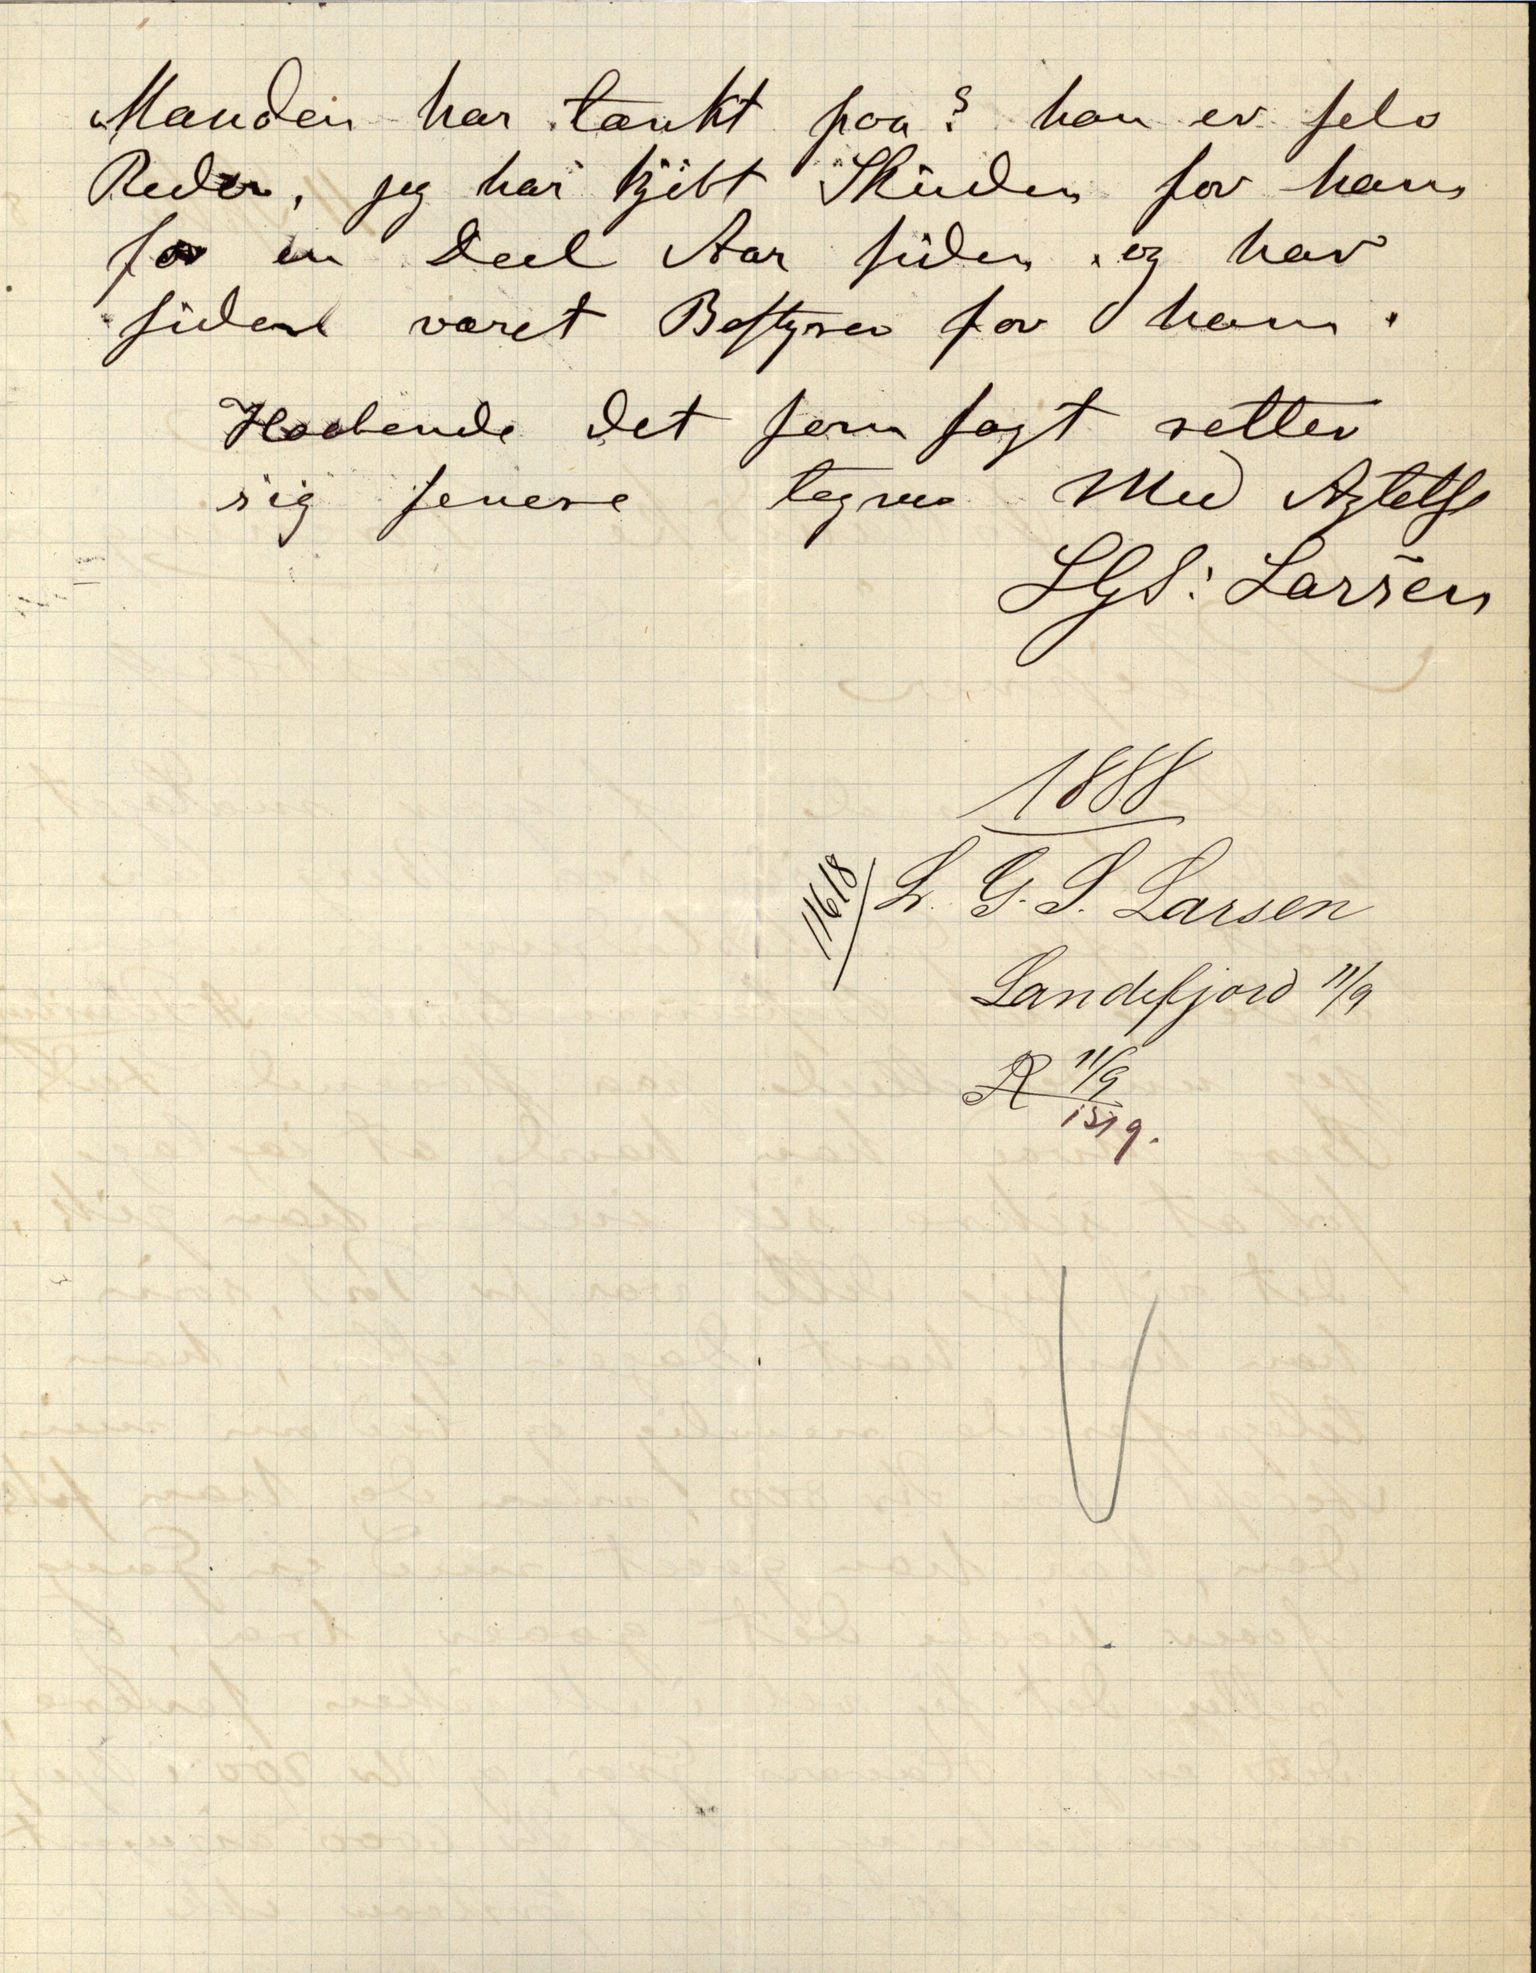 Manden har tænkt paa? han er selv
Reder, jeg har kjøbt Skuden for ham
for en Deel Aar siden og har
siden været Bestyrer for ham.
Haabende det som sagt retter
sig senere tegner Med Agtelse
LGS: Larsen
1888
11618 L. G. S. Larsen
Sandefjord 11/9
R 11/9